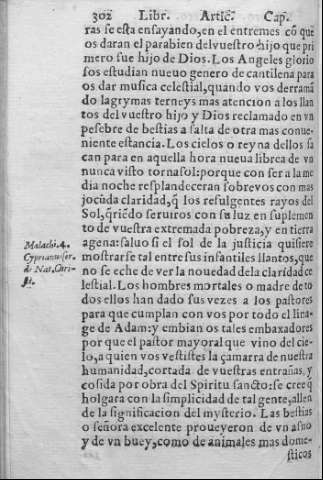 302 Libr. Artic̃. Cap.
ras se esta ensayando, en el entremes cõ quẽ
os daran el parabien del vuestro hijo que pri
mero fue hijo de Dios. Los Angeles glorio
sos estudian nueuo genero de cantilena para
os dar musica celestial, quando vos derramã
do lagrymas terneys mas atencion a los llan
tos del vuestro hijo y Dios reclamado en vn
pesebre de bestias a falta de otra mas conue-
niente estancia. Los cielos o reyna dellos sa
can para en aquella hora nueua librea de vn
nunca visto tornasol: porque con ser a la me
dia noche resplandeceran sobre vos con mas
jocũda claridad, q̃ los refulgentes rayos del
Sol, q̃riẽdo seruiros con su luz en suplemen
to de vuestra extremada pobreza, y en tierra
agena: saluo si el sol de la justicia quisiere
mostrarse tal entre sus infantiles llantos, que
no se eche de ver la nouedad de la claridad ce
lestial. Los hombres mortales o madre de to
dos ellos han dado sus vezes a los pastores
para que cumplan con vos por todo el lina-
ge de Adam: y embian os tales embaxadores
por que el pastor mayoral que vino del cie-
lo, a quien vos vestistes la çamarra de nuestra
humanidad, cortada de vuestras entrañas, y
cosida por obra del Spiritu sancto: se cree q̃
holgara con la simplicidad de tal gente, allen
de la significacion del mysterio. Las bestias
o señora excelente proueyeron de vn asno
y de vn buey, como de animales mas dome-
sticos
Malachi. 4.
Cyprianus ser.
de Nat. Chri-
sti.